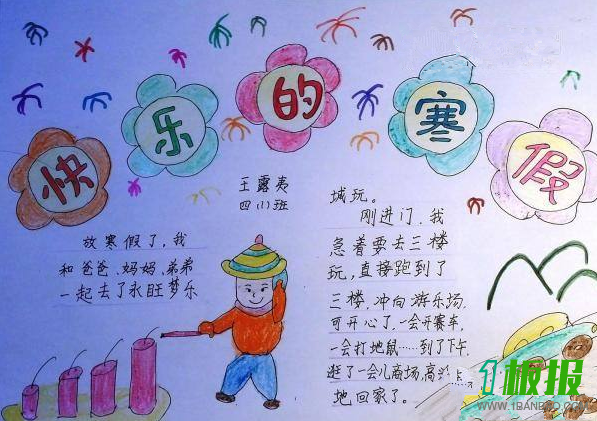 快乐的寒假
王露夷
四(1)班
放寒假了，我
和爸爸、妈妈、弟弟
一起去了永旺梦乐
城玩。
刚进门，我
急着要去三楼
玩，直接跑到了
三楼，冲向游乐场，
可开心了，一会开赛车，
一会打地鼠……到了下午，
逛了一会儿商场，高
地回家了。
板报
WWW.1BANBAO.COM